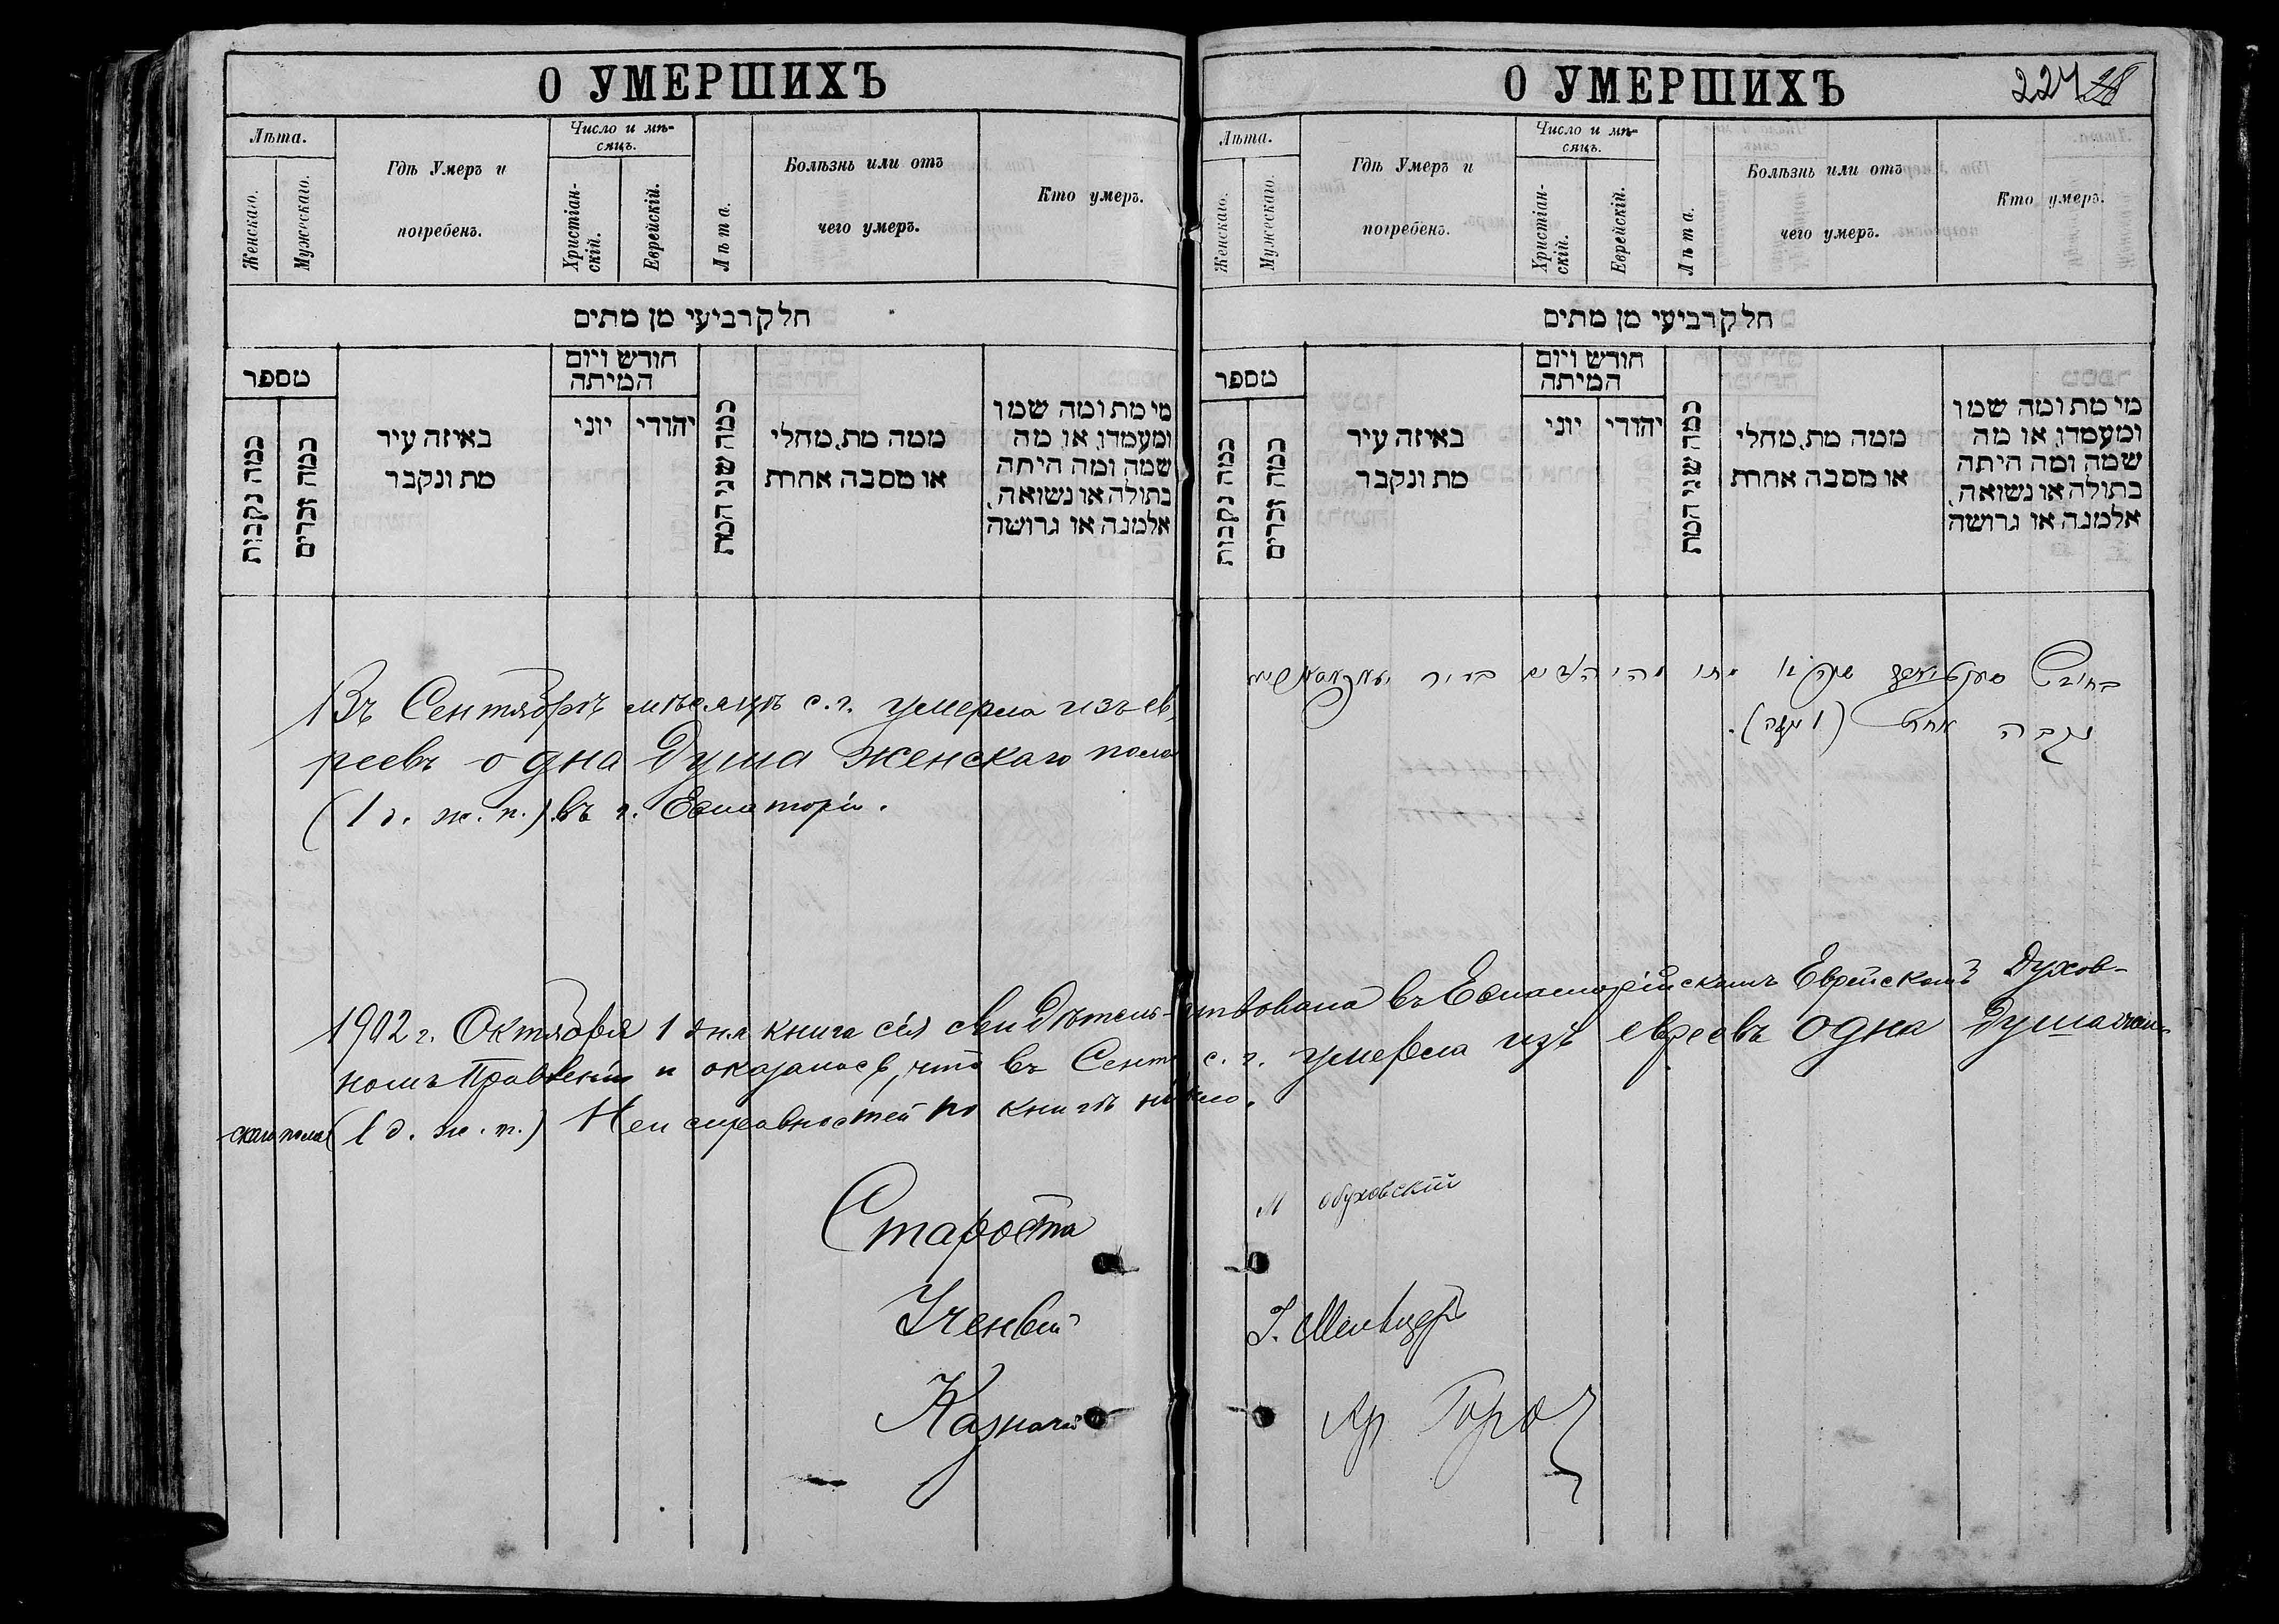 О УМЕРШИХЪ
Лѣта.
Женскаго.
Мужескаго.
Гдѣ Умеръ и
погребенъ.
Число и мѣ-
сяцъ.
Христіан-
скій.
Еврейскій.
Лѣта.
Болѣзнь или отъ
чего умеръ.
Кто умеръ.
חלק רביעי מן מתים
מספר
כמה נקבות
כמה זכרים
באיזה עיר
מת ונקבר
חודש ויום
המיתה
יוני
יהודי
כמה שני המת
ממה מת, מחלי
או מסבה אחרת
מי מת ומה שמו
ומעמדו, או מה
שמה ומה היתה
בתולה או נשואה,
אלמנה או גרושה
Въ Сентябрѣ мѣсяцѣ с. г. умерла изъ ев-
реевъ одна душа женскаго пола
(1 д. ж. п.) въ г. Евпаторіи.
О УМЕРШИХЪ
227 28
Лѣта.
Женскаго.
Мужескаго.
Гдѣ Умеръ и
погребенъ.
Число и мѣ-
сяцъ.
Христіан-
скій.
Еврейскій.
Лѣта.
Болѣзнь или отъ
чего умеръ.
Кто умеръ.
חלק רביעי מן מתים
מספר
כמה נקבות
כמה זכרים
באיזה עיר
מת ונקבר
חודש ויום
המיתה
יוני
יהודי
כמה שני המת
ממה מת, מחלי
או מסבה אחרת
מי מת ומה שמו
ומעמדו, או מה
שמה ומה היתה
בתולה או נשואה,
אלמנה או גרושה
נקבה אחת
1902 г. Октября 1 дня книга сія свидѣтельствована въ Евпаторійскомъ Еврейскомъ Духов-
номъ Правленіи и оказалось, что въ Сент. с. г. умерла изъ евреевъ одна душа жен-
скаго пола (1 д. ж. п.) Неисправностей по книгѣ не было.
Староста М Обуховскій
Ученый
Казначей